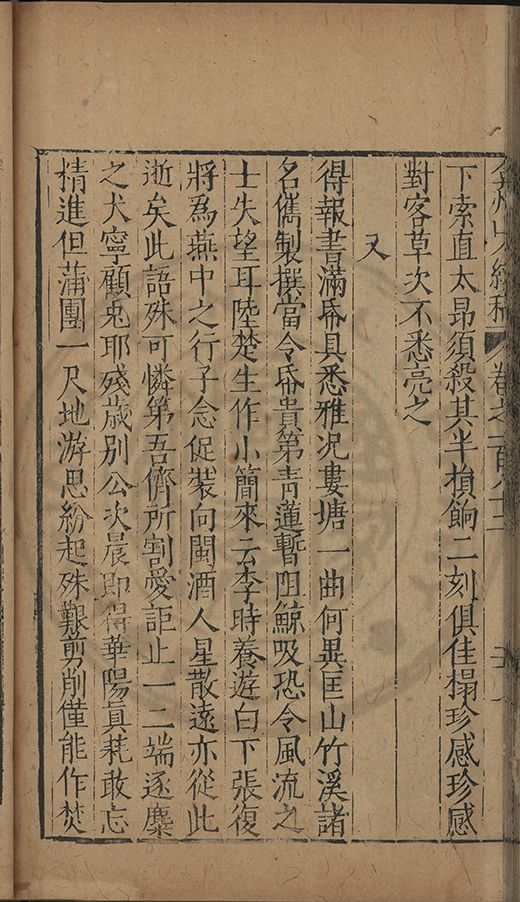 下索直太昂須殺其半損餉二刻俱佳搨珍感珍感
對客草次不悉亮之
又
得報書滿帋具悉雅况婁塘一曲何異匡山竹溪諸
名儁製撰當令帋貴第靑蓮暫阻鯨吸恐令風流之
士失望耳陸楚生作小簡來云李時養遊白下張復
將為燕中之行子念促裝向閩酒人星散遠亦從此
逝矣此語殊可憐第吾儕所割愛詎止一二端逐麋
之犬寧顧兎耶殘歲別公次晨即得華陽眞耗敢忘
精進但蒲團一尺地游思紛起殊艱剪削僅能作焚